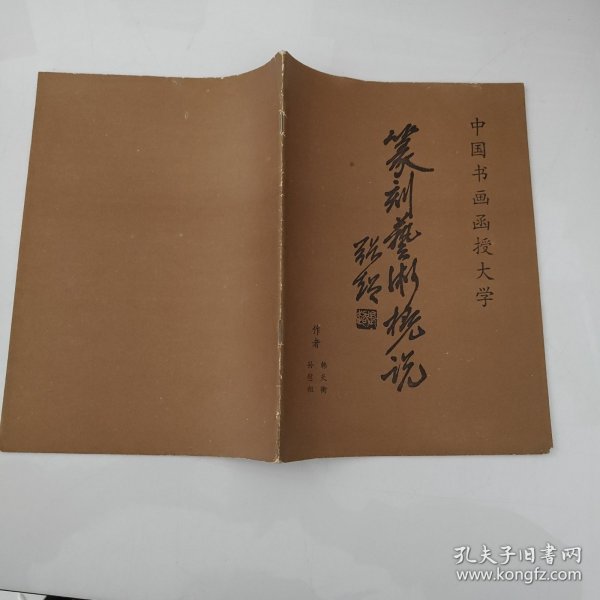 中国书画函授大学
篆刻藝術概说
作者
韩天衡
孙慰祖
孔夫子旧书网
www.kongfz.com